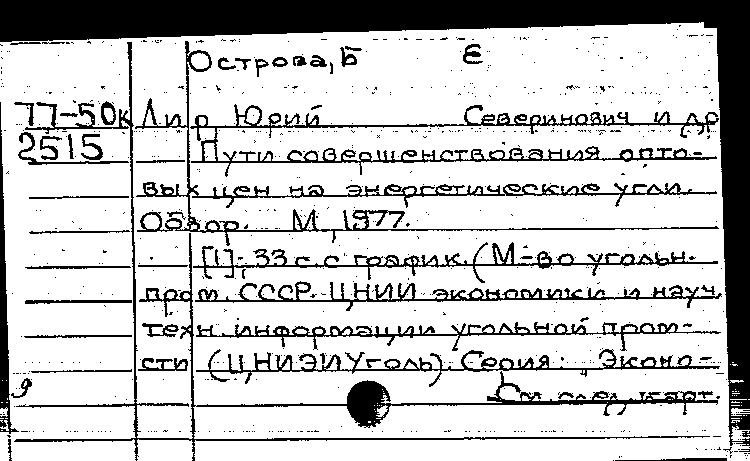 Острова, Б Є
77-50к Лир Юрий Северинович и др
2515 Пути совершенствования опто-
вых цен на энергетические угли.
Обзор. М, 1977.
[1], 33 с. с график. (М-во угольн.
пром. СССР. ЦНИИ экономики и науч.
техн. информации угольной пром-
сти (ЦНИЭИУголь). Серия: "Эконо-
9 См. след. карт.